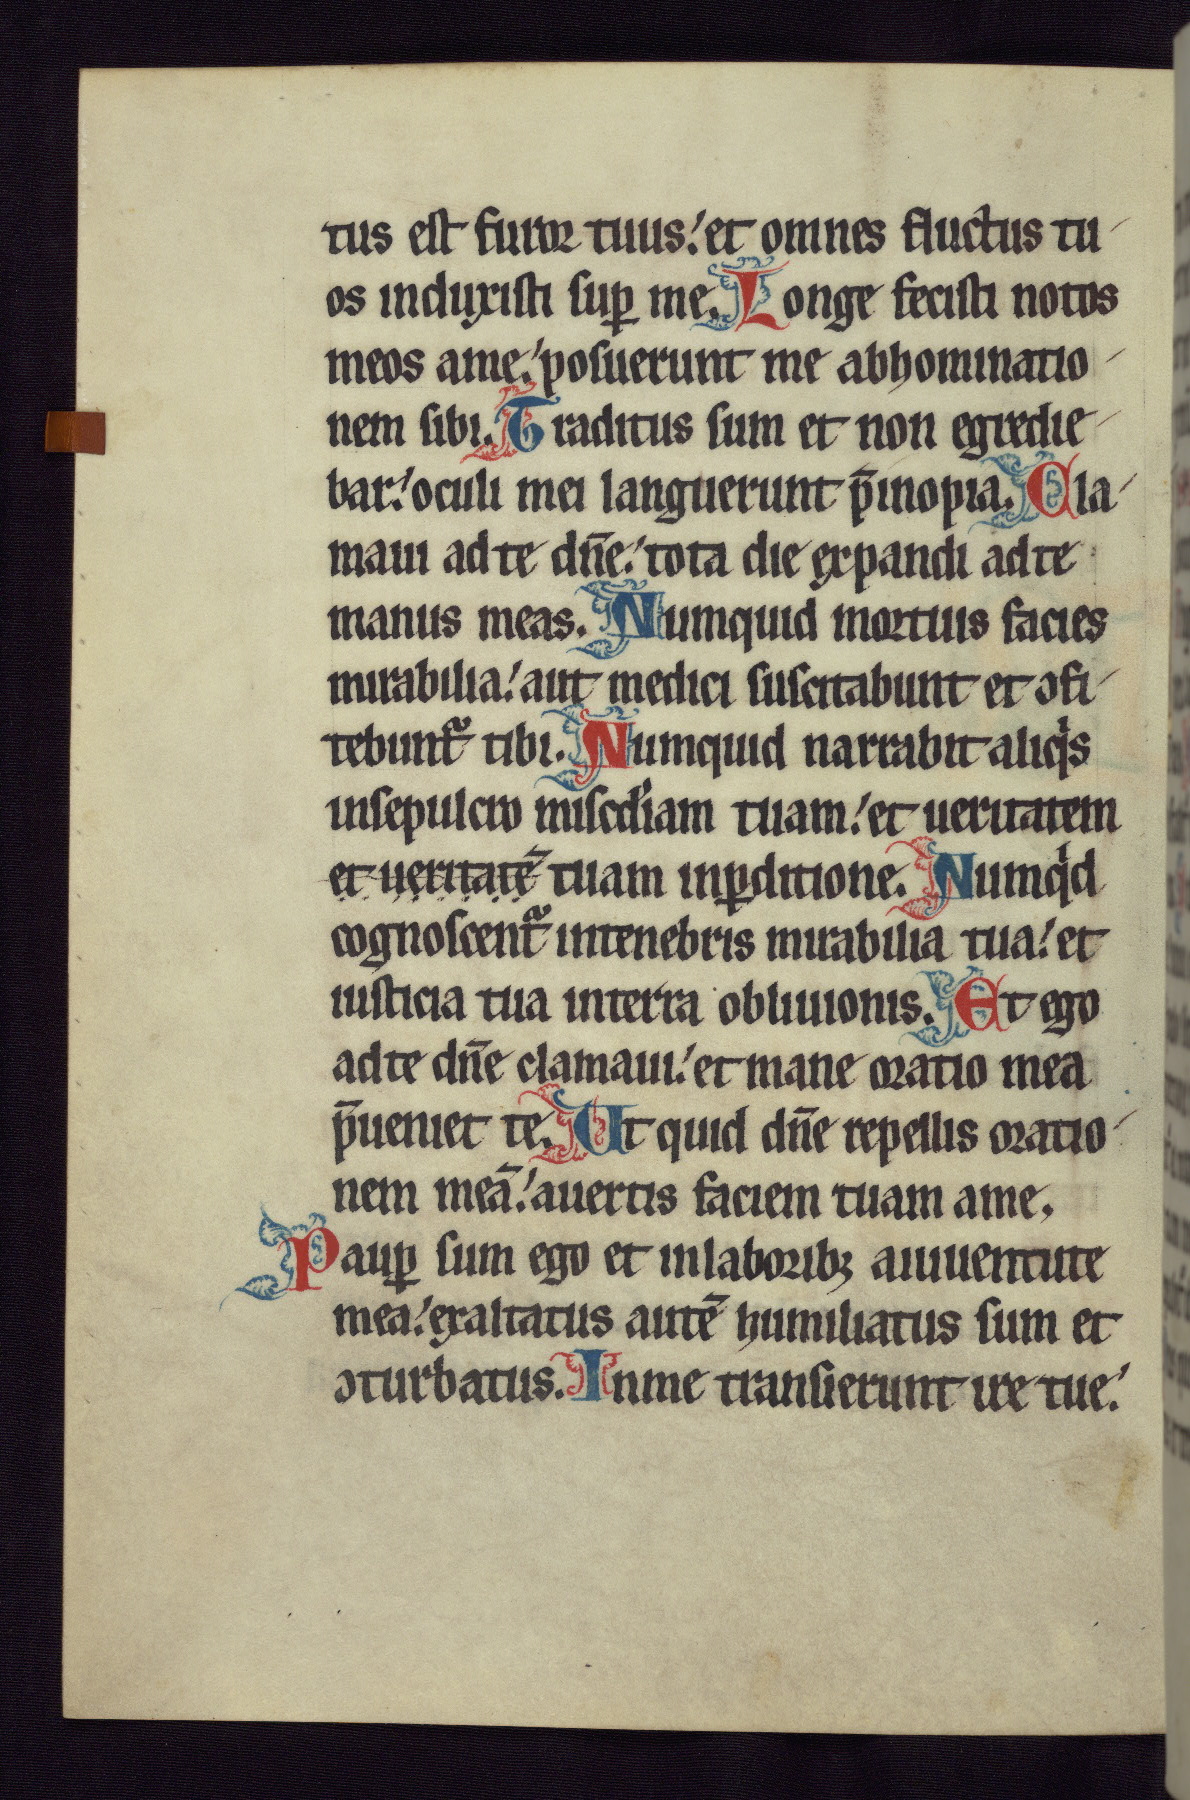 tus est furor tuus. et omnes fluctus tu-
os induxisti suꝑ me. Longe fecisti notos
meos ame. posuerunt me abhominatio-
nem sibi. Traditus sum et non egredie-
bar. oculi mei languerunt p̄inopia. Cla-
maui adte dn̄e. tota die expandi adte
manus meas. Numquid mortuis facies
mirabilia. aut medici suscitabunt et ↄfi-
tebunt᷑ tibi. Numquid narrabit aliqͥs
insepulcro misc̄diam tuam. et ueritatem
et ueritatē tuam inꝑditione. Numqͥd
cognoscent᷑ intenebris mirabilia tua. et
iusticia tua interra obliuionis. Et ego
adte dn̄e clamaui. et mane oratio mea
p̄ueniet te. Ut quid dn̄e repellis oratio-
nem meā. auertis faciem tuam ame.
Pauꝑ sum ego et inlaboribꝫ aiuuentute
mea. exaltatus autē humiliatus sum et
ↄturbatus. Inme transierunt ire tue.